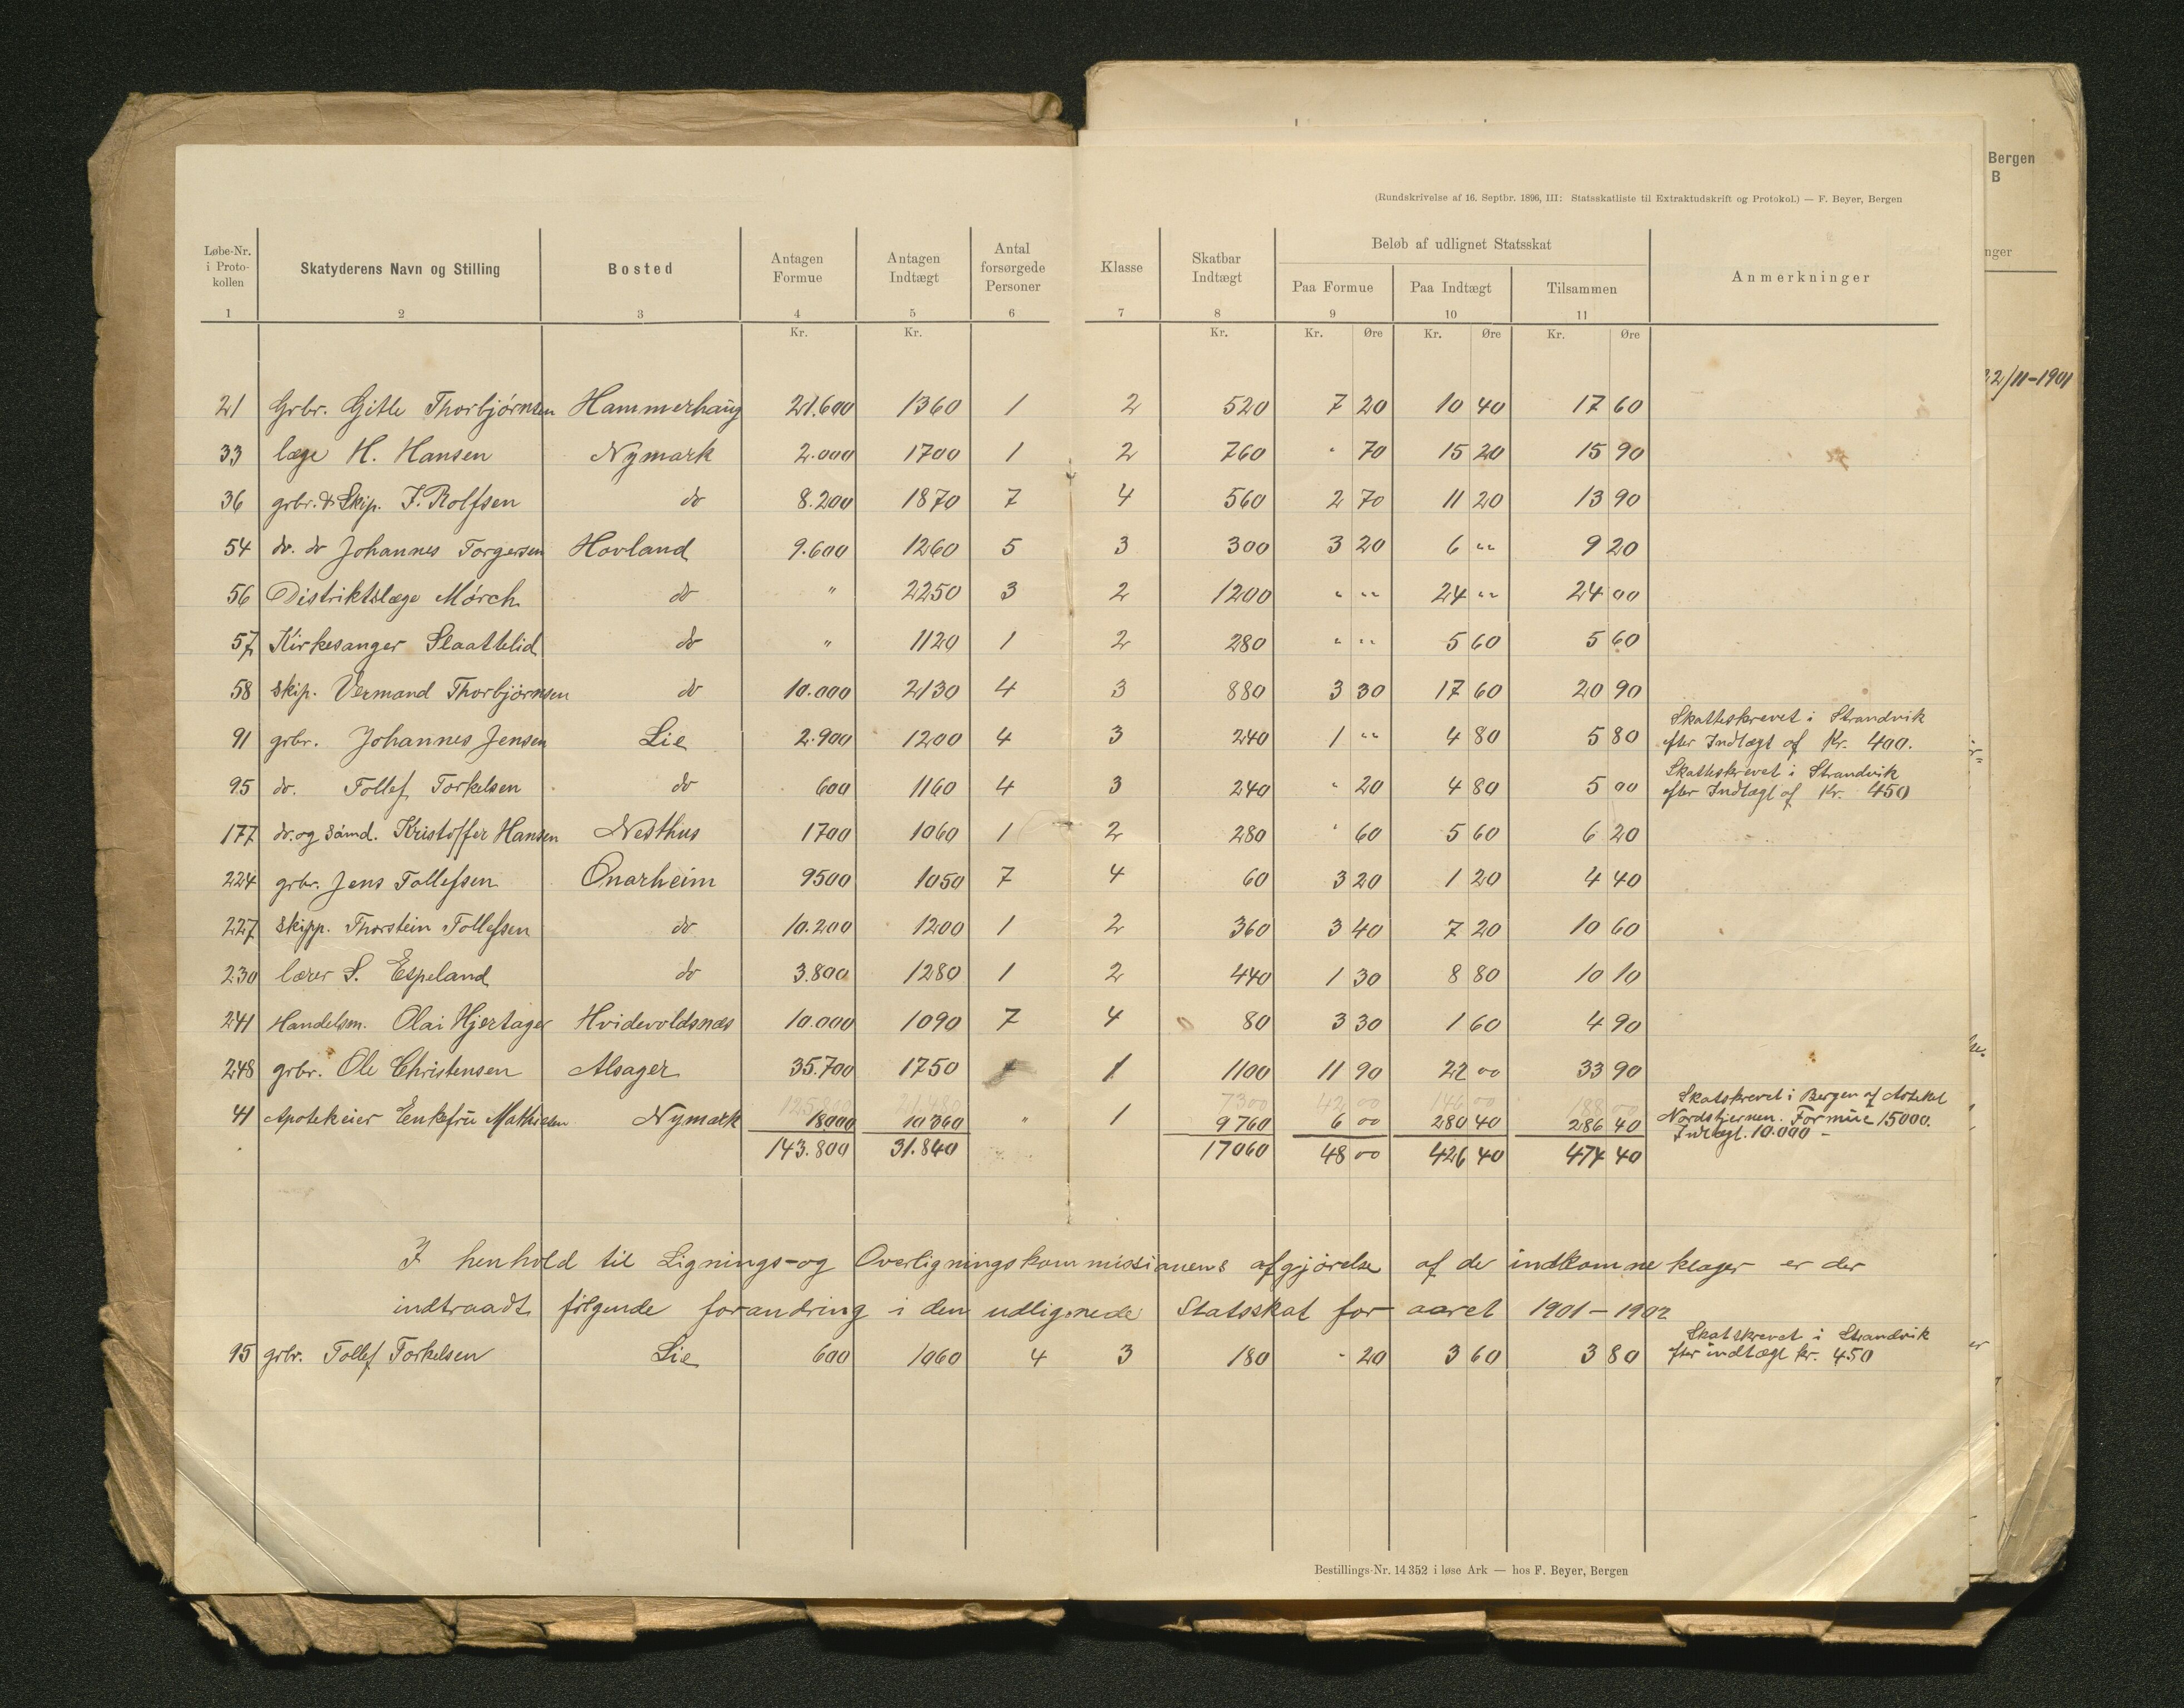 Bergen
B
nger
22/11-1901
(Rundskrivelse af 16. Septbr. 1896, III: Statsskatliste til Extraktudskrift og Protokol.) — F. Beyer, Bergen
Løbe-Nr. i Proto-kollen Skatyderens Navn og Stilling Bosted Antagen Formue Antagen Indtægt Antal forsørgede Personer Klasse Skatbar Indtægt Beløb af udlignet Statsskat Paa Formue Paa Indtægt Tilsammen Anmerkninger
1 2 3 4 5 6 7 8 9 10 11
Kr. Kr. Kr. Kr. Øre Kr. Øre Kr. Øre
21 Grbr. Gitle Thorbjørnsen Hammerhaug 21.600 1360 1 2 520 7 20 10 40 17 60
33 læge H. Hansen Nymark 2.000 1700 1 2 760 " 70 15 20 15 90
36 grbr. & Skip. J. Rolfsen do 8.200 1870 7 4 560 2 70 11 20 13 90
54 do. do Johannes Torgersen Hovland 9.600 1260 5 3 300 3 20 6 " 9 20
56 Distriktslæge Mørch do " 2250 3 2 1200 " " 24 " 24 00
57 Kirkesanger Slaattelid do " 1120 1 2 280 " " 5 60 5 60
58 Skip. Vermand Thorbjørnsen do 10.000 2130 4 3 880 3 30 17 60 20 90
91 grbr. Johannes Jensen Lie 2.900 1200 4 3 240 1 " 4 80 5 80 Skatteskrevet i Strandvik
efter Indtægt af Kr. 400.
95 do. Tollef Torkelsen do 600 1160 4 3 240 " 20 4 80 5 00 Skatteskrevet i Strandvik
efter Indtægt af Kr. 450
177 do. og Sámd. Kristoffer Hansen Nesthus 1700 1060 1 2 280 " 60 5 60 6 20
224 grbr. Jens Tollefsen Onarheim 9500 1050 7 4 60 3 20 1 20 4 40
227 Skipp. Thorstein Tollefsen do 10.200 1200 1 2 360 3 40 7 20 10 60
230 lærer S. Espeland do 3.800 1280 1 2 440 1 30 8 80 10 10
241 Handelsm. Olai Hjertager Hvidevoldsnæs 10.000 1090 7 4 80 3 30 1 60 4 90
248 grbr. Ole Christensen Alsager 35.700 1750 1 1100 11 90 22 00 33 90
125.800 21.480 7300 42 00 146 00 188 00
41 Apotekeier Enkefru Mathiesen Nymark 18000 10360 " 1 9760 6 00 280 40 286 40 Skatskrevet i Bergen af
Nordstjernen. Formue 15000.
Indtægt. 10.000 -
143.800 31.840 17060 48 00 426 40 474 40
I henhold til Lignings-og Overligningskommissionens afgjørelse af de indkomne klager er der
indtraadt følgende forandring i den udlignede Statsskat for aaret 1901-1902
95 grbr. Tollef Torkelsen Lie 600 1060 4 3 180 " 20 3 60 3 80 Skatskrevet i Strandvik
efter indtægt kr. 450
Bestillings-Nr. 14352 i løse Ark — hos F. Beyer, Bergen